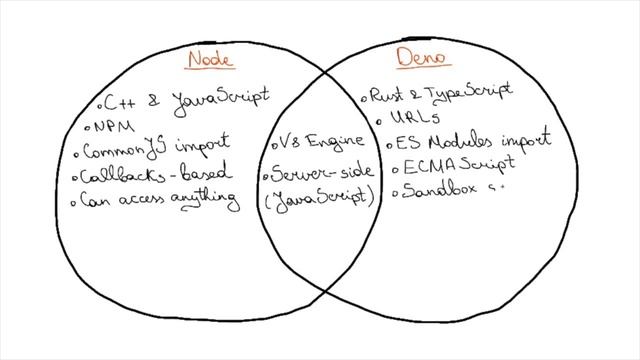 Node
• C++ & JavaScript
• NPM
• CommonJS import
• Callbacks-based
• Can access anything
• V8 Engine
• Server-side
(JavaScript)
Deno
• Rust & TypeScript
• URLs
• ES Modules import
• ECMAScript
• Sandbox